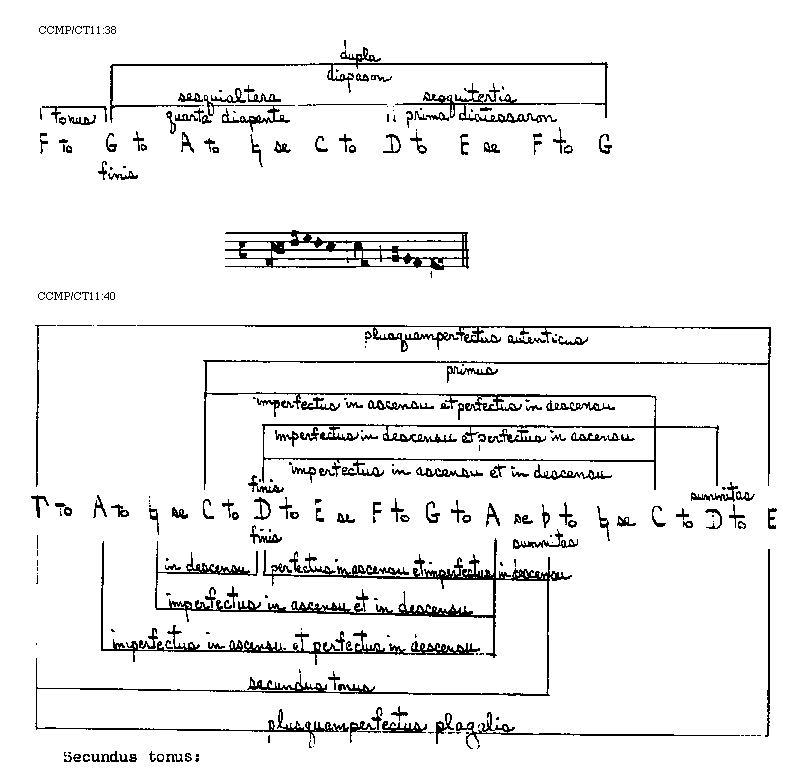 CCMP/CT11:38
dupla
diapason
sesquialtera sesquitertia
tonus quarta diapente prima diatessaron
F to G to A to ♮ se C to D to E se F to G
finis
CCMP/CT11:40
plusquamperfectus autenticus
primus
imperfectus in ascensu et perfectus in descensu
imperfectus in descensu et perfectus in ascensu
imperfectus in ascensu et in descensu
finis summitas
Γ to A to ♮ se C to D to E se F to G to A se b to ♮ se C to D to E
finis summitas
in descensu perfectus in ascensu et imperfectus in descensu
imperfectus in ascensu et in descensu
imperfectus in ascensu et perfectus in descensu
secundus tonus
plusquamperfectus plagalis
Secundus tonus: